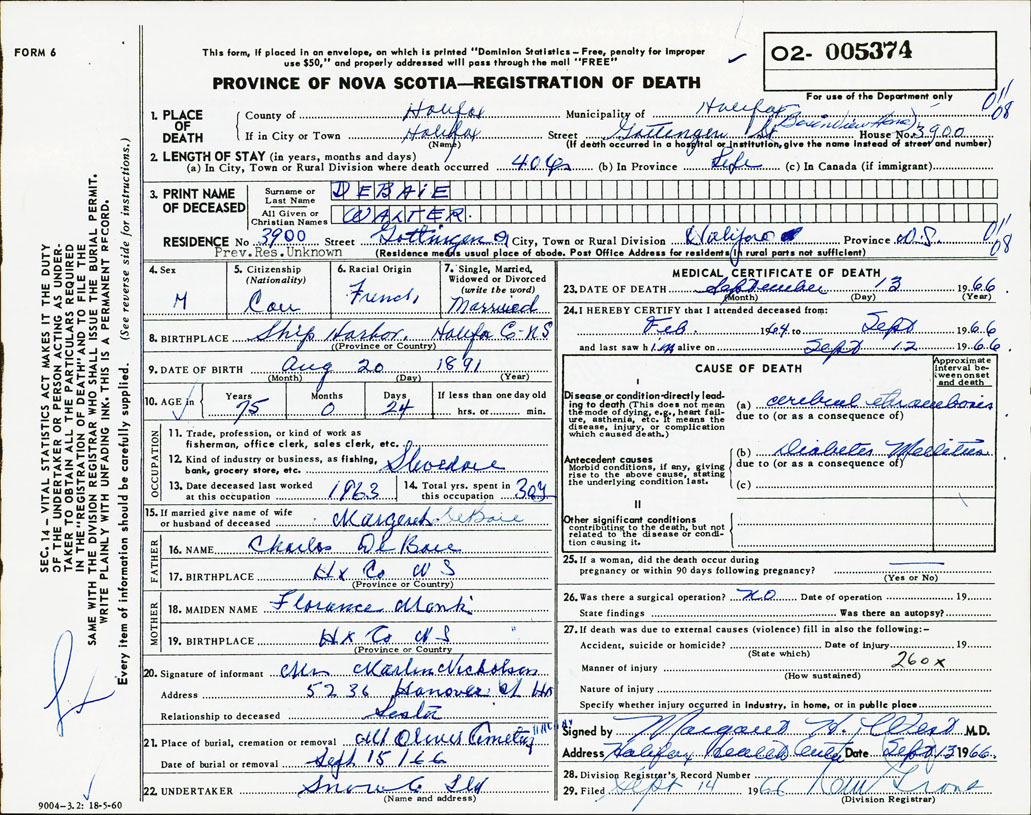 FORM 6
This form, if placed in an envelope, on which is printed "Dominion Statistics – Free, penalty for improper
use $50," and properly addressed will pass through the mail "FREE"
O2- 005374
PROVINCE OF NOVA SCOTIA—REGISTRATION OF DEATH
For use of the Department only
1. PLACE OF DEATH
County of Halifax Municipality of Halifax
If in City or Town Halifax Street Gottingen St House No. 3900
(Name) (If death occurred in a hospital or institution, give the name instead of street and number)
011
08
2. LENGTH OF STAY (in years, months and days)
(a) In City, Town or Rural Division where death occurred 40 yrs (b) In Province Life (c) In Canada (if immigrant)
3. PRINT NAME OF DECEASED
Surname or Last Name DEBAIE
All Given or Christian Names WALTER
RESIDENCE No 3900 Street Gottingen City, Town or Rural Division Halifax Province N.S.
Prev.Res.Unknown (Residence means usual place of abode. Post Office Address for residents in rural parts not sufficient)
011
08
4. Sex M
5. Citizenship (Nationality) Can
6. Racial Origin French
7. Single, Married, Widowed or Divorced (write the word) Married
8. BIRTHPLACE Ship Harbor, Halifax Co NS
(Province or Country)
9. DATE OF BIRTH Aug 20 1891
(Month) (Day) (Year)
10. AGE in Years 75 Months 0 Days 24 If less than one day old hrs. or min.
OCCUPATION
11. Trade, profession, or kind of work as fisherman, office clerk, sales clerk, etc.
12. Kind of industry or business, as fishing, bank, grocery store, etc. Stevedore
13. Date deceased last worked at this occupation 1963
14. Total yrs. spent in this occupation 30 y
15. If married give name of wife or husband of deceased Margaret DeBaie
FATHER
16. NAME Charles De Baie
17. BIRTHPLACE Hx Co NS
(Province or Country)
MOTHER
18. MAIDEN NAME Florance Monk
19. BIRTHPLACE Hx Co NS
(Province or Country)
20. Signature of informant Mrs Nicholson
Address 5236 Hanover St Hx
Relationship to deceased Sister
21. Place of burial, cremation or removal Mt Olivet Cemetery
Date of burial or removal Sept 15/66
22. UNDERTAKER Snow Co Ltd
(Name and address)
MEDICAL CERTIFICATE OF DEATH
23. DATE OF DEATH September 13 1966
(Month) (Day) (Year)
24. I HEREBY CERTIFY that I attended deceased from:
Feb. 1964 to Sept 1966
and last saw him alive on Sept 12 1966
CAUSE OF DEATH
Approximate interval between onset and death
I
Disease or condition directly leading to death (This does not mean the mode of dying, e.g., heart failure, asthenia, etc. It means the disease, injury, or complication which caused death.)
(a) cerebral thrombosis
due to (or as a consequence of)
Antecedent causes
Morbid conditions, if any, giving rise to the above cause, stating the underlying condition last.
(b) Diabetes Mellitus
due to (or as a consequence of)
(c)
II
Other significant conditions contributing to the death, but not related to the disease or condition causing it.
25. If a woman, did the death occur during pregnancy or within 90 days following pregnancy?
(Yes or No)
26. Was there a surgical operation? NO Date of operation 19
State findings Was there an autopsy?
27. If death was due to external causes (violence) fill in also the following:–
Accident, suicide or homicide? Date of injury 19
(State which)
260x
Manner of injury
(How sustained)
Nature of injury
Specify whether injury occurred in industry, in home, or in public place
Signed by Margaret H. West M.D.
Address Halifax Date Sept 13 1966
28. Division Registrar's Record Number
29. Filed Sept 14 1966
(Division Registrar)
SEC. 14 – VITAL STATISTICS ACT MAKES IT THE DUTY
OF THE UNDERTAKER OR PERSON ACTING AS UNDER-
TAKER TO OBTAIN ALL THE PARTICULARS REQUIRED
IN THE "REGISTRATION OF DEATH" AND TO FILE THE
SAME WITH THE DIVISION REGISTRAR WHO SHALL ISSUE THE BURIAL PERMIT.
WRITE PLAINLY WITH UNFADING INK. THIS IS A PERMANENT RECORD.
Every item of information should be carefully supplied. (See reverse side for instructions.)
9004–3.2: 18-5-60